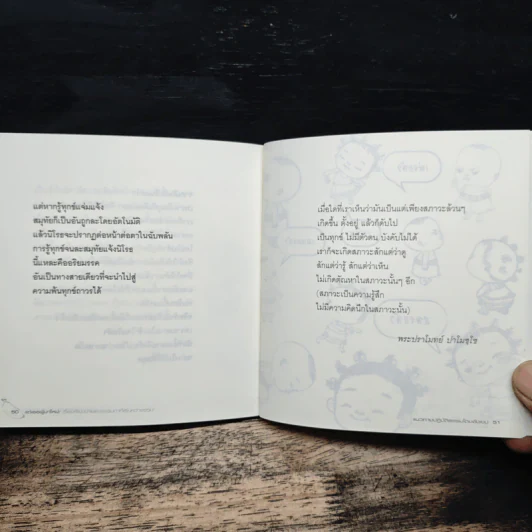 แต่หากรู้ทุกข์แจ่มแจ้ง
สมุทัยก็เป็นอันถูกละโดยอัตโนมัติ
แล้วนิโรธจะปรากฏต่อหน้าต่อตาในฉับพลัน
การรู้ทุกข์จนละสมุทัยแจ้งนิโรธ
นี้แหละคืออริยมรรค
อันเป็นทางสายเดียวที่จะนำไปสู่
ความพ้นทุกข์ถาวรได้
เมื่อใดที่เราเห็นว่ามันเป็นแต่เพียงสภาวะล้วนๆ
เกิดขึ้น ตั้งอยู่ แล้วก็ดับไป
เป็นทุกข์ ไม่มีตัวตน บังคับไม่ได้
เราก็จะเกิดสภาวะสักแต่ว่าดู
สักแต่ว่ารู้ สักแต่ว่าเห็น
ไม่เกิดตัณหาในสภาวะนั้นๆ อีก
(สภาวะเป็นความรู้สึก
ไม่มีความคิดนึกในสภาวะนั้น)
พระปราโมทย์ ปาโมชฺโช